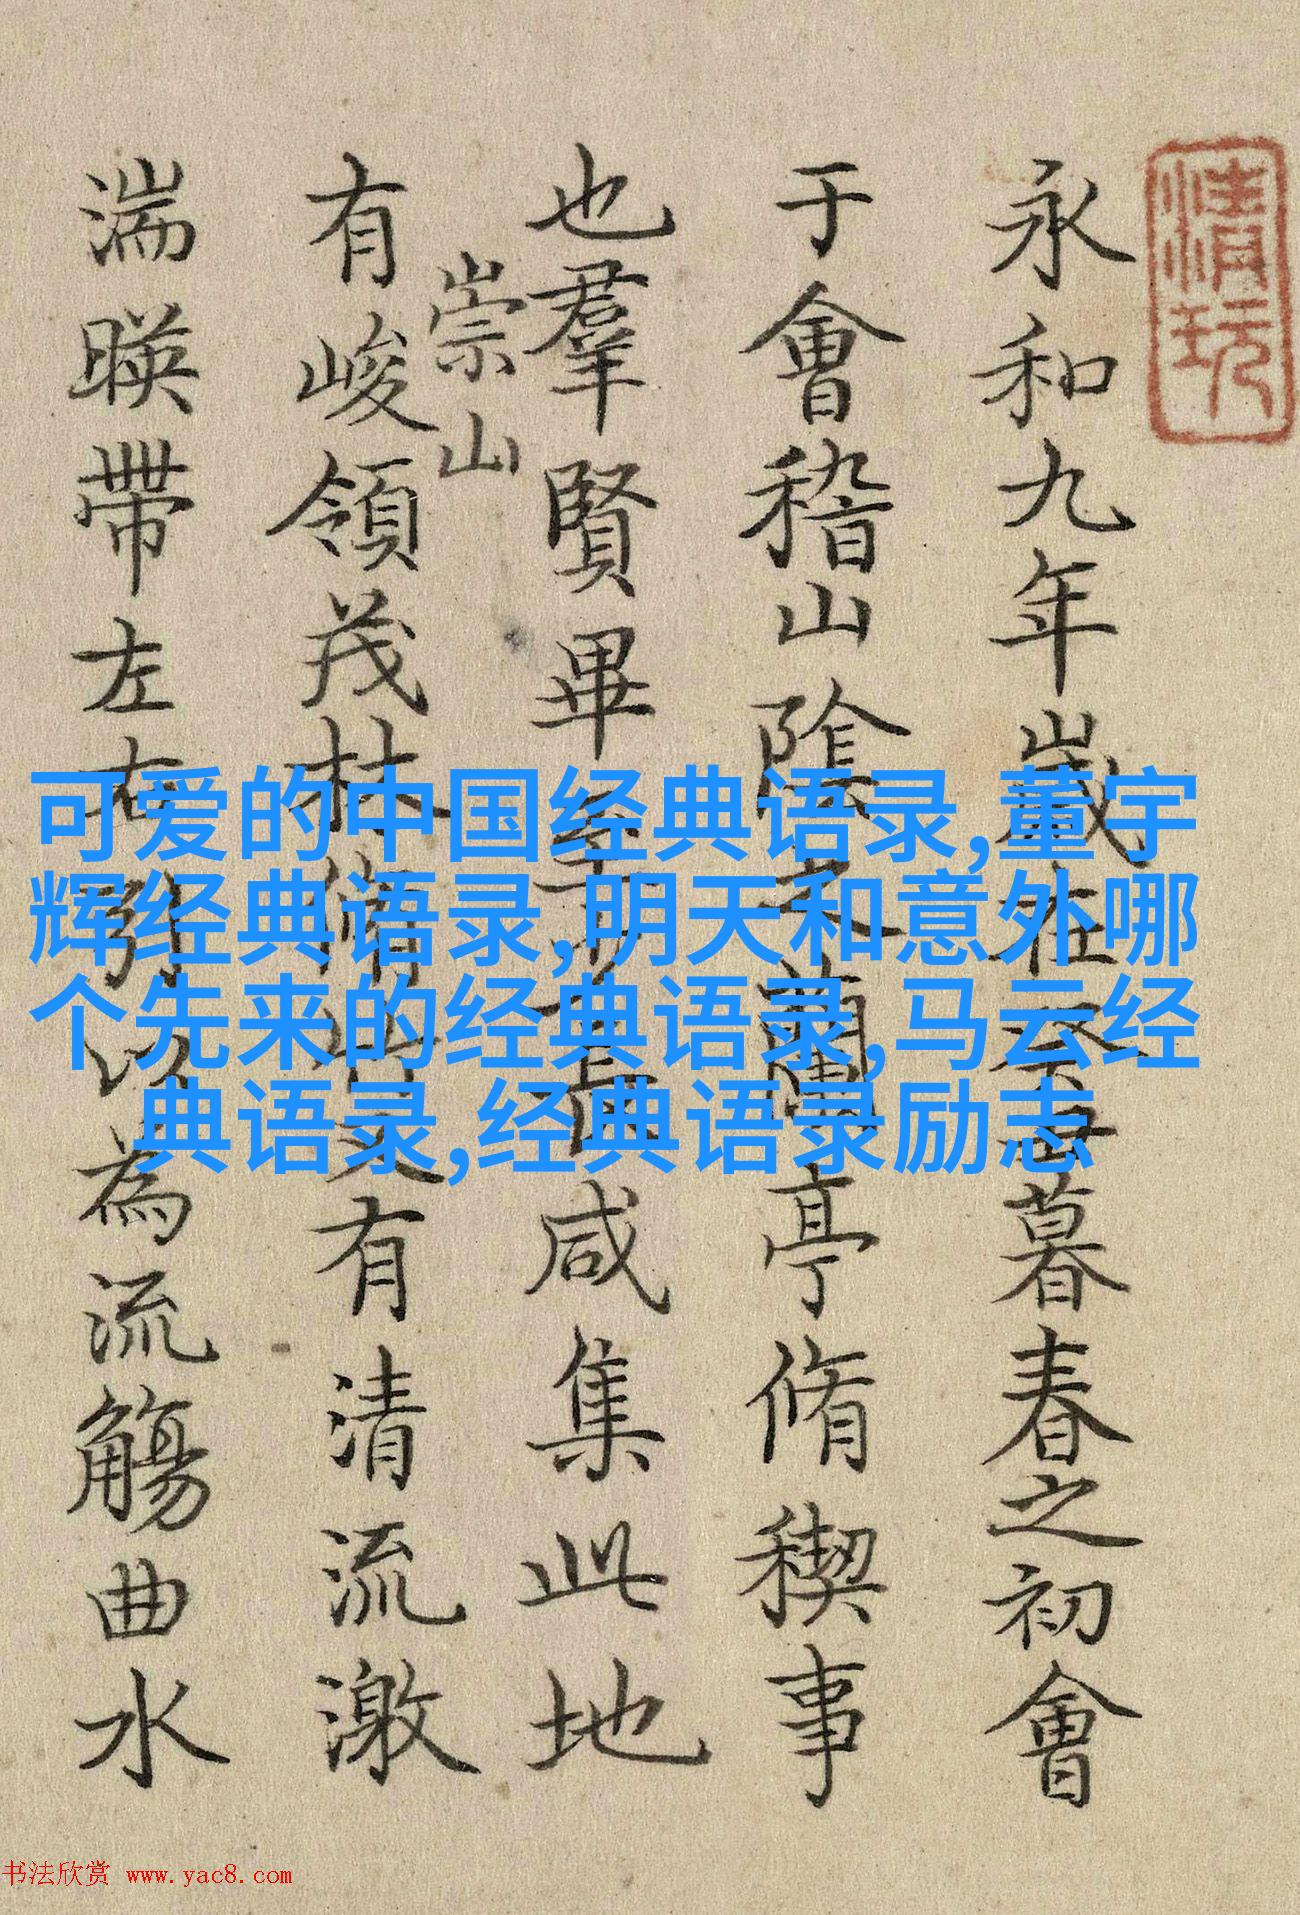 永和九年歲在癸丑暮春之初會
于會稽山陰之蘭亭脩稧事
也羣賢畢至少長咸集此地
崇山
有峻領茂林脩竹又有清流激
湍暎帶左右引以為流觴曲水
清玩
可爱的中国经典语录,董宇
辉经典语录,明天和意外哪
个先来的经典语录,马云经
典语录,经典语录励志
书法欣赏 www.yac8.com